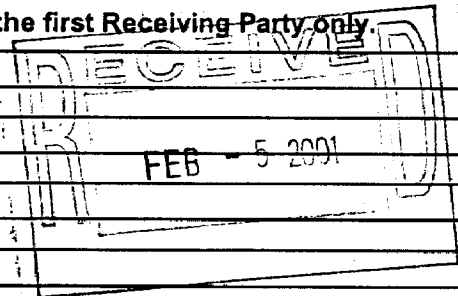 the first Receiving Party only.
RECEIVED
FEB - 5 2001